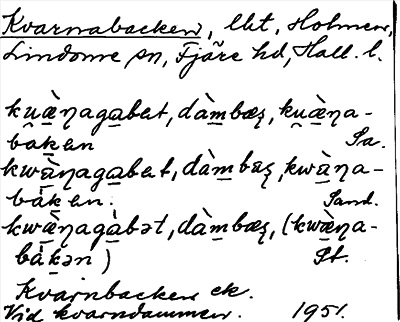 Kvarnabacken, lht, Holmen,
Lindome sn, Fjäre hd, Hall. l.
ku̯æ̀ŋagabət, dàmbæʂ, ku̯æ̀ŋa-
bàkən Sa.
kwæ̀ŋagabət, dàmbæʂ, kwæ̀ŋa-
bákən. Sand.
kwæ̀ŋagàbət, dàmbæʂ, (kwæ̀ŋa-
bákən) St.
Kvarnbacken ek.
Vid kvarndammen. 1951.